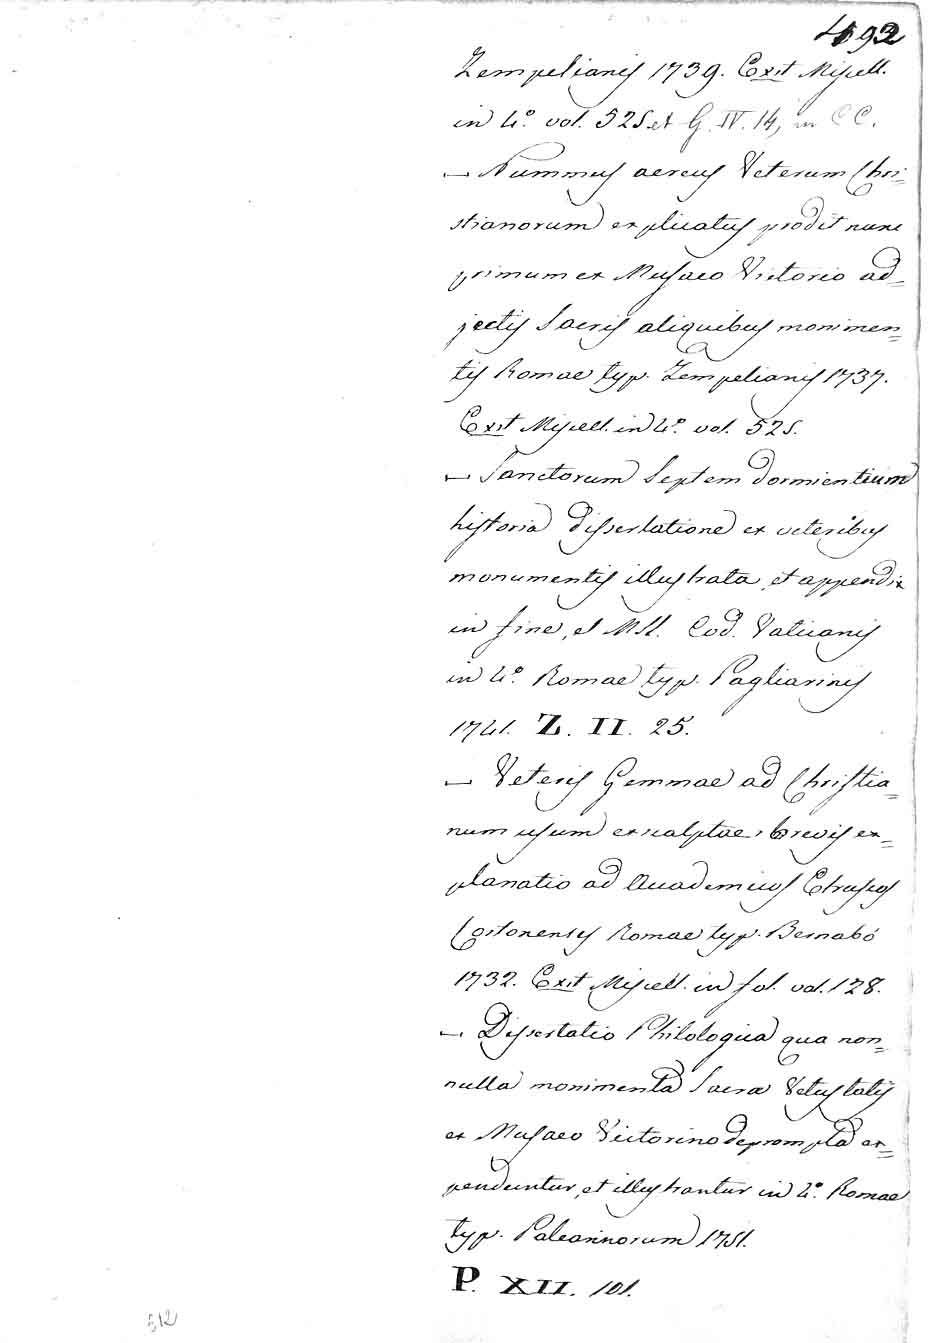 492
Zempelianis 1739. Exit Miscell.
in 4.º vol. 525 et G. IV. 14, in CC.
— Nummus aereus Veterum Chri-
stianorum explicatus prodit nunc
primum ex Musaeo Victorio ad=
jectis Sacris aliquibus monimen=
tis Romae typ. Zempelianis 1737.
Exit Miscell. in 4.º vol. 525.
— Sanctorum Septem dormientium
historia dissertatione ex veteribus
monumentis illustrata, et appendix
in fine, et MSS. Cod. Vaticanis
in 4.º Romae typ. Pagliarinis
1741. Z. II. 25.
— Veteris Gemmae ad Christia=
num usum exscalptae brevis ex=
planatio ad Academicos Etruscos
Cortonenses Romae typ. Bernabó
1732. Exit Miscell. in fol. vol. 128.
— Dissertatio Philologica qua non=
nulla monimenta Sacrae Vetustatis
ex Musaeo Victorino deprompta ex=
penduntur, et illustrantur in 4.º Romae
typ. Palearinorum 1751.
P. XII. 101.
512